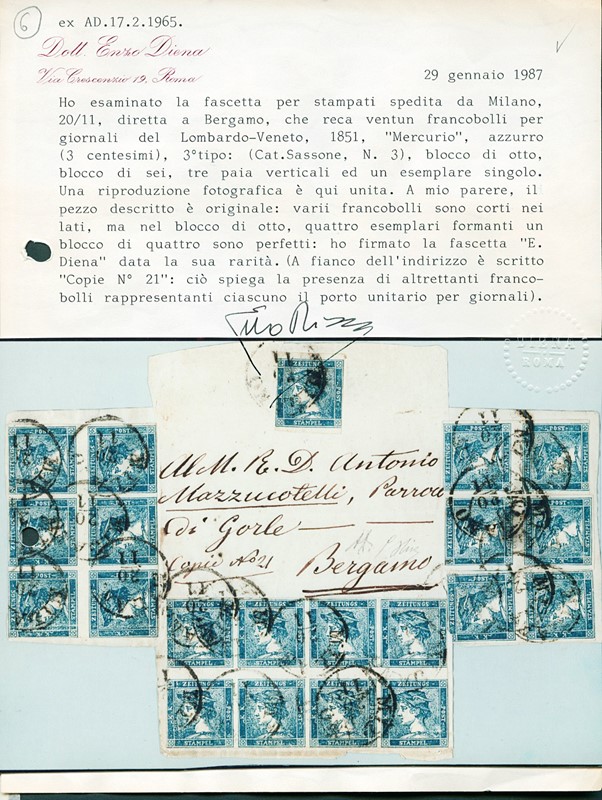 6
ex AD.17.2.1965.
Dott. Enzo Diena
Via Crescenzio 19, Roma
29 gennaio 1987
Ho esaminato la fascetta per stampati spedita da Milano,
20/11, diretta a Bergamo, che reca ventun francobolli per
giornali del Lombardo-Veneto, 1851, "Mercurio", azzurro
(3 centesimi), 3°tipo: (Cat.Sassone, N. 3), blocco di otto,
blocco di sei, tre paia verticali ed un esemplare singolo.
Una riproduzione fotografica è qui unita. A mio parere, il
pezzo descritto è originale: varii francobolli sono corti nei
lati, ma nel blocco di otto, quattro esemplari formanti un
blocco di quattro sono perfetti: ho firmato la fascetta "E.
Diena" data la sua rarità. (A fianco dell'indirizzo è scritto
"Copie N° 21": ciò spiega la presenza di altrettanti franco-
bolli rappresentanti ciascuno il porto unitario per giornali).
DIENA
ROMA
ZEITUNGS
STAMPEL
Al M. R. D. Antonio
Mazzucotelli, Parroco
di Gorle
Copie No 21
Bergamo
ZEITUNGS ZEITUNGS ZEITUNGS ZEITUNGS
STAMPEL STAMPEL STAMPEL STAMPEL
ZEITUNGS ZEITUNGS ZEITUNGS ZEITUNGS
STAMPEL STAMPEL STAMPEL STAMPEL